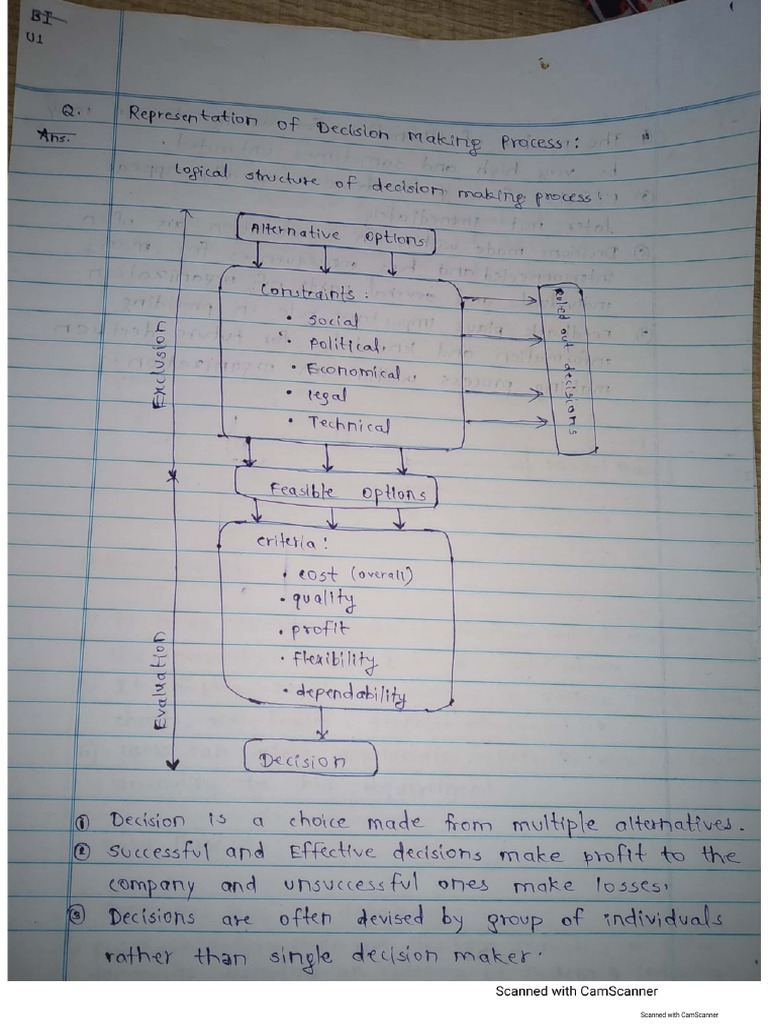 BI
U1
Q. Representation of Decision Making Process:
Ans.
Logical structure of decision making process:
Alternative Options
Constraints:
• Social
• Political
• Economical
• legal
• Technical
Ruled out decisions
Exclusion
Feasible Options
criteria:
• cost (overall)
• quality
• profit
• flexibility
• dependability
Evaluation
Decision
① Decision is a choice made from multiple alternatives.
② Successful and Effective decisions make profit to the
company and unsuccessful ones make losses.
③ Decisions are often devised by group of individuals
rather than single decision maker.
Scanned with CamScanner
Scanned with CamScanner